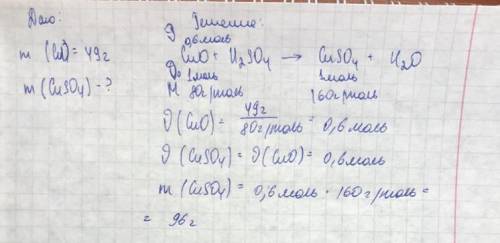 Дано:
m (CuO) = 49г
m (CuSO4) - ?
Решение:
υ 0,6моль
CuO + H2SO4 → CuSO4 + H2O
υ0 1моль 1моль
M 80г/моль 160г/моль
υ(CuO) = 49г / 80г/моль = 0,6моль
υ(CuSO4) = υ(CuO) = 0,6моль
m(CuSO4) = 0,6моль · 160г/моль =
= 96г